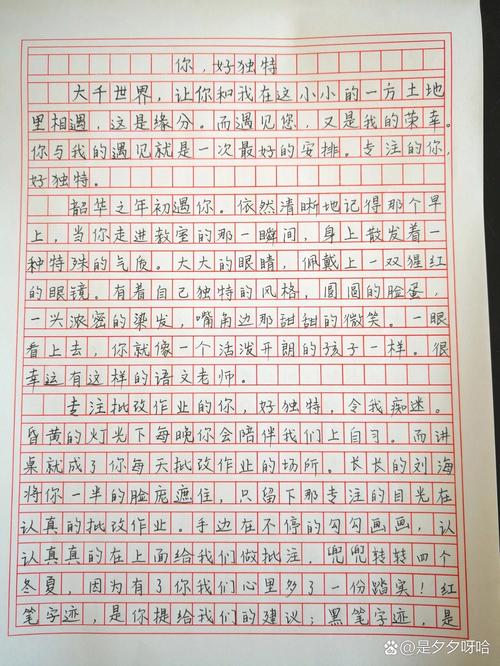 你，好独特
大千世界，让你和我在这小小的一方土地
里相遇，这是缘分。而遇见您，又是我的荣幸。
你与我的遇见就是一次最好的安排。专注的你，
好独特。
韶华之年初遇你。依然清晰地记得那个早
上，当你走进教室的那一瞬间，身上散发着一
种特殊的气质。大大的眼睛，佩戴上一双猩红
的眼镜。有着自己独特的风格，圆圆的脸蛋，
一头浓密的染发，嘴角边那甜甜的微笑。一眼
看上去，你就像一个活泼开朗的孩子一样。很
幸运有这样的语文老师。
专注批改作业的你，好独特，令我痴迷。
昏黄的灯光下每晚你会陪伴我们上自习。而讲
桌就成了你每天批改作业的场所。长长的刘海
将你一半的脸庞遮住，只留下那专注的目光在
认真的批改作业。手边在不停的勾勾画画，认
认真真的在上面给我们做批注，兜兜转转四个
冬夏，因为有了你我们心里多了一份踏实！红
笔字迹，是你提给我们的建议；黑笔字迹，是
@是夕夕呀哈